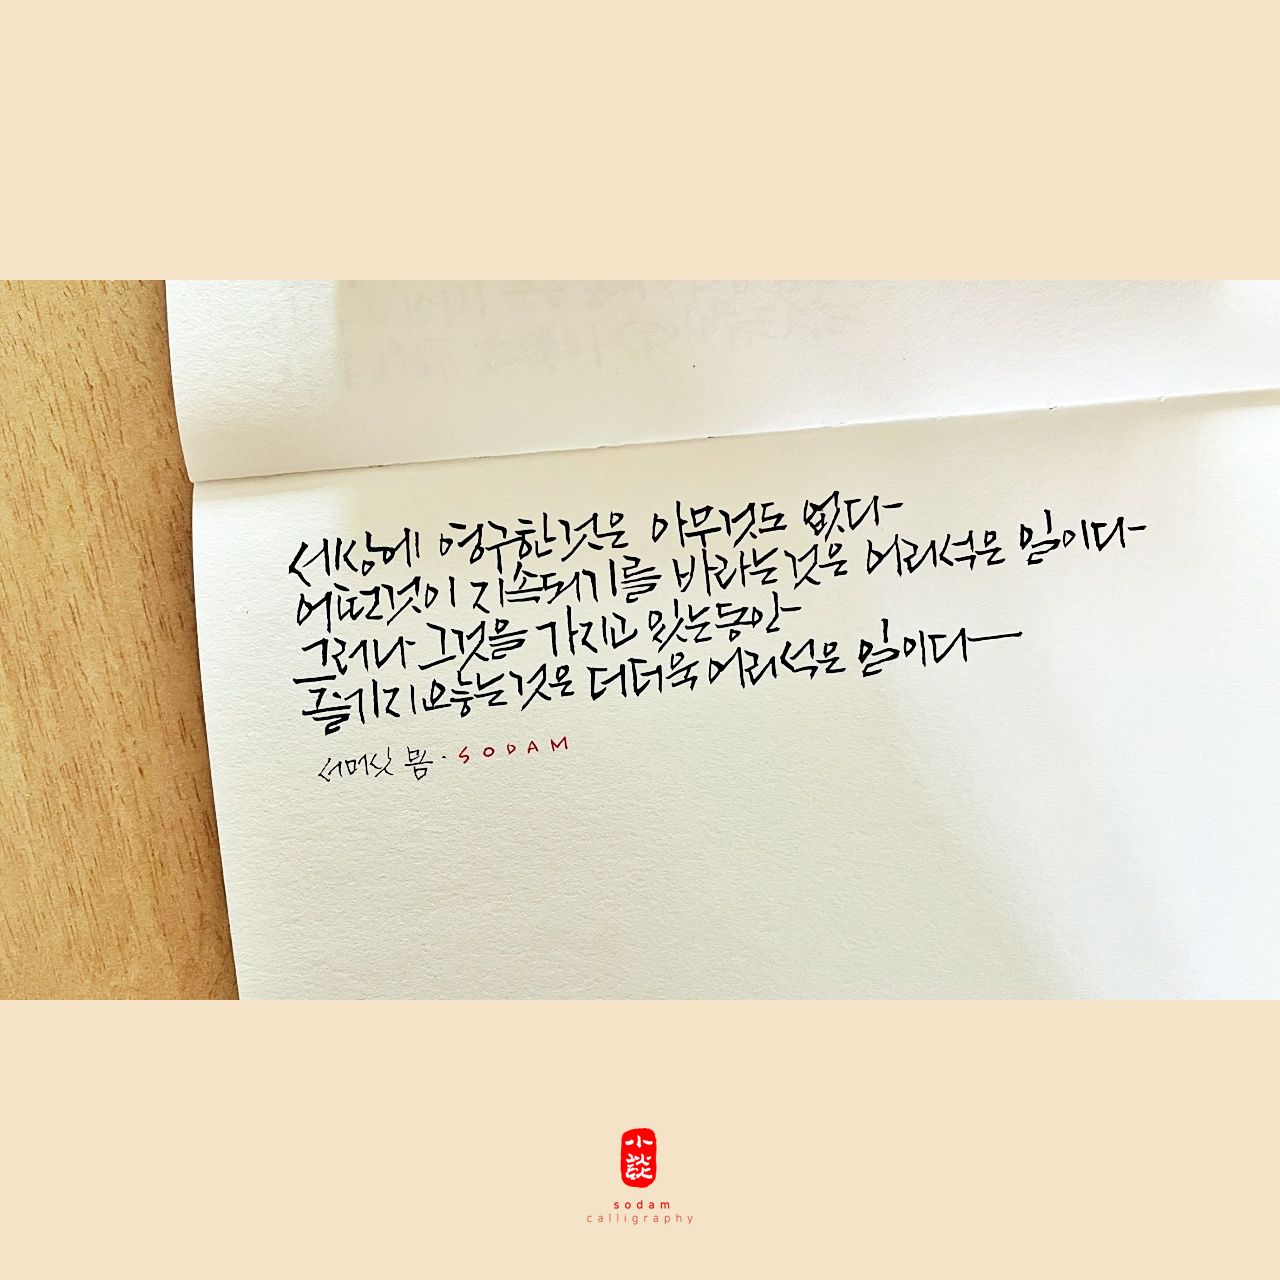 세상에 영구한것은 아무것도 없다
어떤것이 지속되기를 바라는것은 어리석은 일이다
그러나 그것을 가지고 있는동안
즐기지요않는것은 더더욱 어리석은 일이다
서머싯 몸 · SODAM
小談
sodam
calligraphy